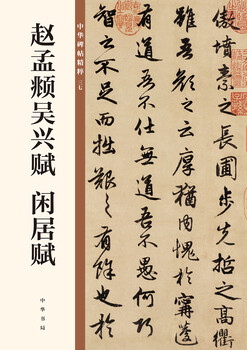 傲墳素之長圃步先哲之高衢
雖吾顏之云厚猶内愧於甯蘧
有道吾不仕無道吾不愚何巧
智之不足而拙艱之有餘也於
中华碑帖精粹
赵孟頫吴兴赋 闲居赋
中华书局